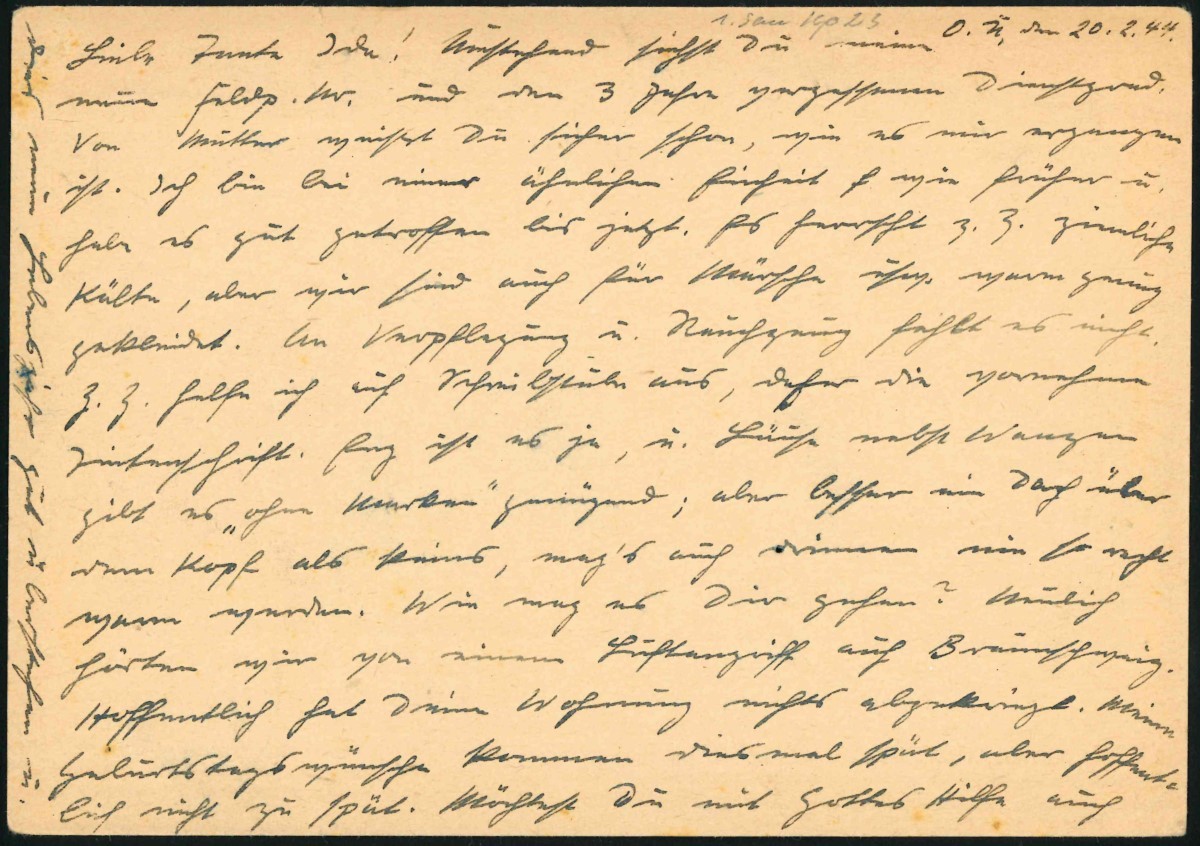 1. San Kp 23
O. U., den 20.2.44.
Liebe Tante Ida! Umstehend siehst Du meine
neue Feldp. Nr. und den 3 Jahre vergessenen Dienstgrad.
Von Mutter weisst Du sicher schon, wie es mir ergangen
ist. Ich bin bei einer ähnlichen Einheit wie früher u.
habe es gut getroffen bis jetzt. Es herrscht z. Z. ziemliche
Kälte, aber wir sind auch für Märsche usw. warm genug
gekleidet. An Verpflegung u. Rauchzeug fehlt es nicht.
Z. Z. helfe ich auf Schreibstube aus, daher die vornehme
Tintenschrift. Eng ist es ja, u. Läuse nebst Wanzen
gibt es „ohne Marken" genügend; aber besser ein Dach über
dem Kopf als keins, mag's auch drinnen nie so recht
warm werden. Wie mag es Dir gehen? Neulich
hörten wir von einem Luftangriff auf Braunschweig.
Hoffentlich hat Deine Wohnung nichts abgekriegt. Meine
Geburtstagswünsche kommen diesmal spät, aber hoffent-
lich nicht zu spät. Möchtest Du mit Gottes Hilfe auch
neue Lebensjahr gut u.